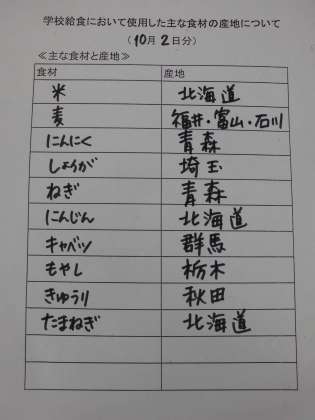 学校給食において使用した主な食材の産地について
（10月2日分）
≪主な食材と産地≫
食材 産地
米 北海道
麦 福井・富山・石川
にんにく 青森
しょうが 埼玉
ねぎ 青森
にんじん 北海道
キャベツ 群馬
もやし 栃木
きゅうり 秋田
たまねぎ 北海道